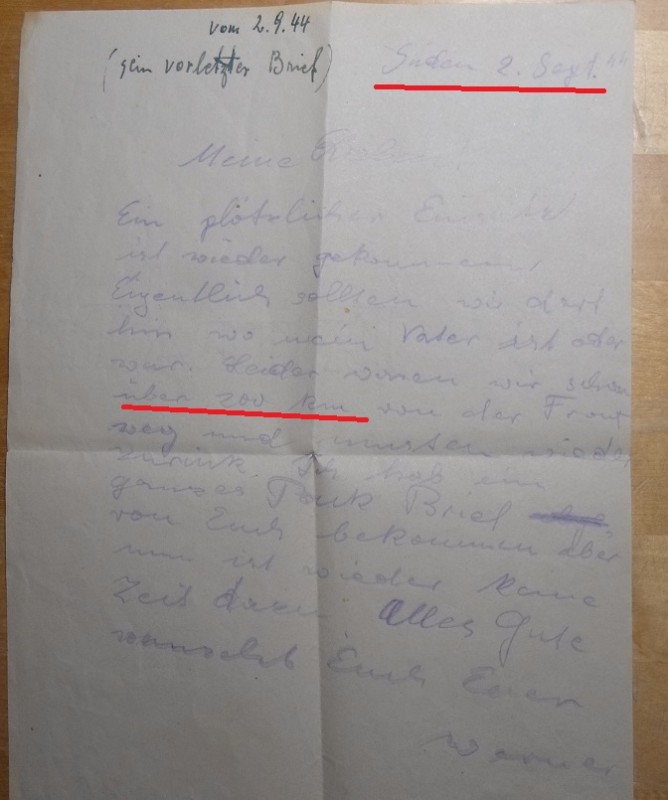 vom 2.9.44
(sein vorletzter Brief)
Süden 2. Sept. 44
Meine Lieben!
Ein plötzlicher Einsatz
ist wieder gekommen.
Eigentlich sollten wir dort
hin wo mein Vater ist oder
war. Leider waren wir schon
über 200 km von der Front
weg und mussten wieder
zurück. Ich hab ein
ganzes Pack Brief
von Euch bekommen aber
nun ist wieder keine
Zeit dazu. Alles Gute
wünscht Euch Euer
Werner